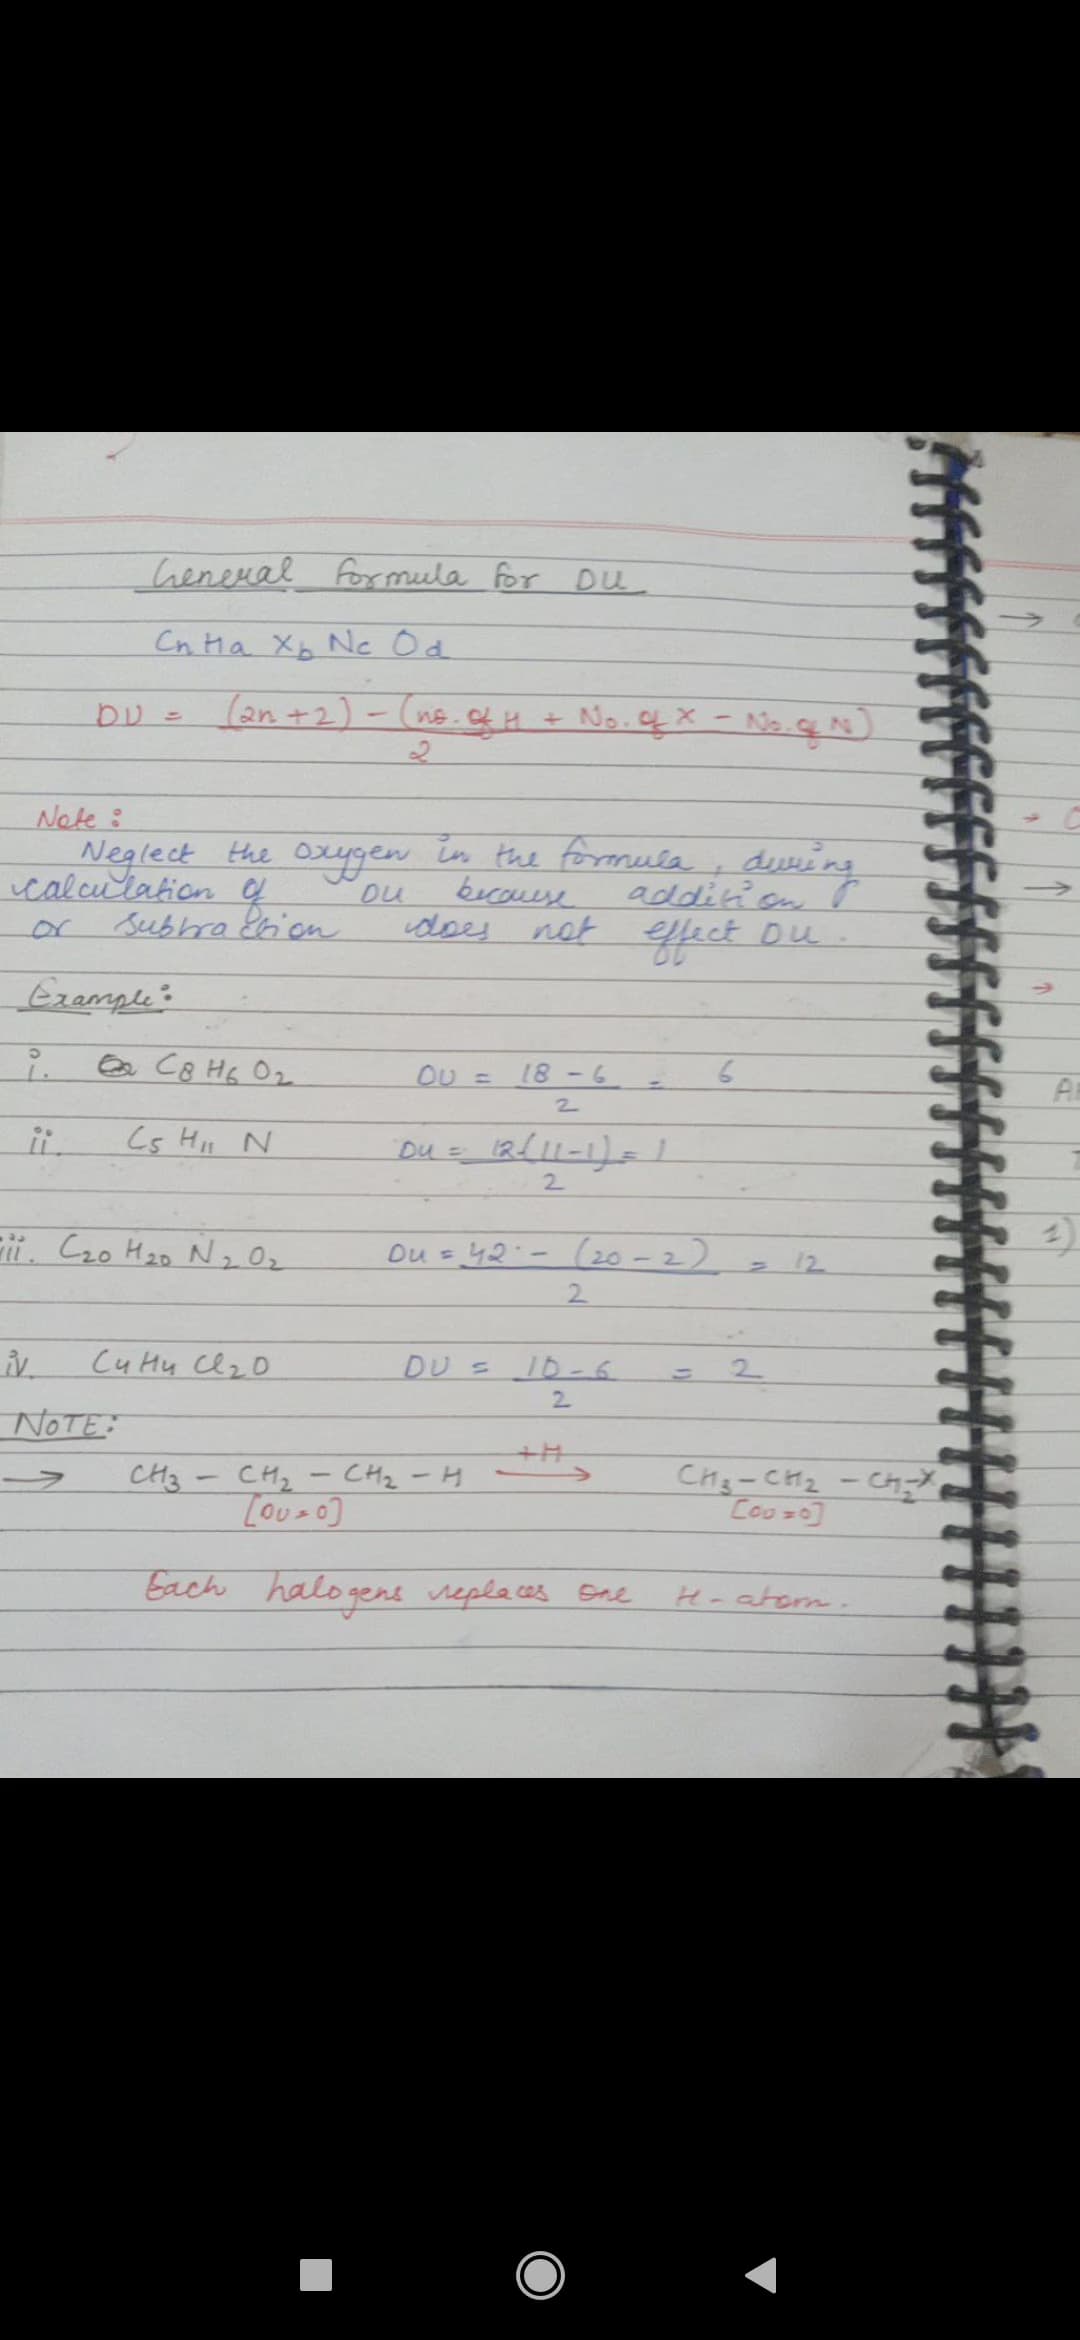 General formula for DU
CnHa Xb Nc Od
DU = (2n+2) - (no. of H + No. of X - No. of N)
2
Note :
Neglect the oxygen in the formula, during
calculation of DU because addition
or subtraction does not effect DU.
Example :
i. C8 H6 O2 DU = 18 - 6 = 6
2
ii. C5 H11 N DU = 12-(11-1) = 1
2
iii. C20 H20 N2 O2 DU = 42 - (20 - 2) = 12
2
iv. C4 H4 Cl2 O DU = 10 - 6 = 2
2
NOTE:
→ CH3 - CH2 - CH2 - H +H → CH3 - CH2 - CH2-X
[DU=0] [DU=0]
Each halogens replaces one H-atom.
→
→ C
→
→
A
1)